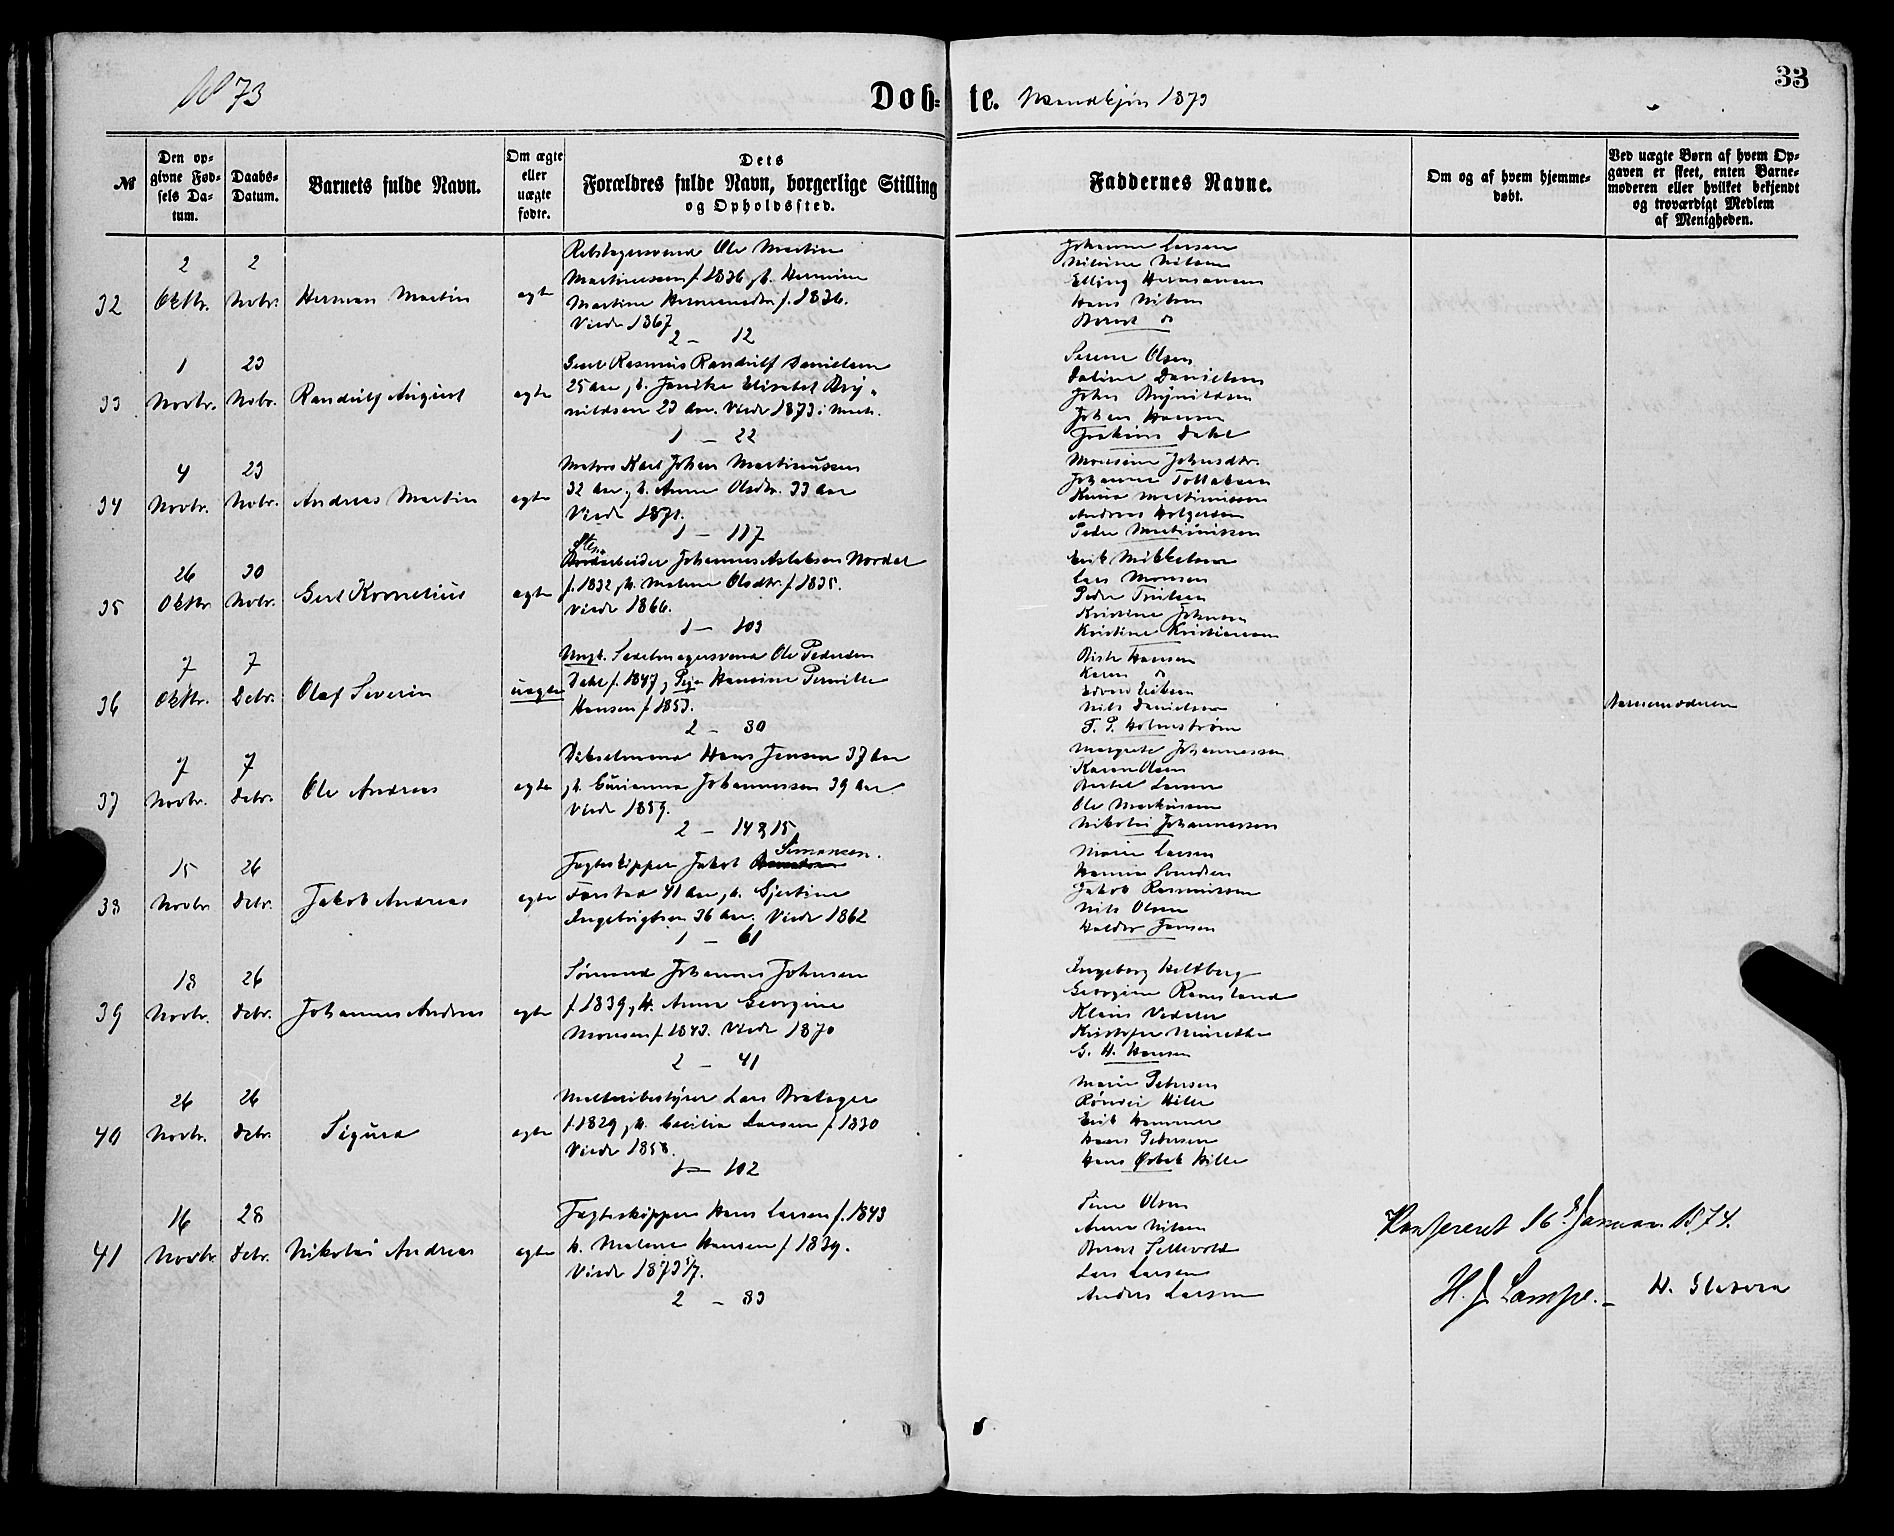 1873
Døb- te. Mandkjøn 1873
33
№
Den op-
givne Fød-
sels Da-
tum.
Daabs-
Datum.
Barnets fulde Navn.
Om ægte
eller
uægte
fødte.
Dets
Forældres fulde Navn, borgerlige Stilling
og Opholdssted.
Faddernes Navne.
Om og af hvem hjemme-
døbt.
Ved uægte Børn af hvem Op-
gaven er skeet, enten Barne-
moderen eller hvilket bekjendt
og troværdigt Medlem
af Menigheden.
32
2
Oktbr.
2
Novbr.
Herman Martin
ægte
Rebslagersvend Ole Martin
Martinussen f. 1836, h. Hermine
Martine Hermansdtr f. 1836.
Viede 1867
2 — 12
Johanne Larsen
Nilsine Nilsen
Elling Hermansen
Hans Nilsen
Berent do
33
1
Novbr.
23
Novbr.
Randulf August
ægte
Rasmus Randulf Danielsen
25 Aar, h. Janike Elisabet Bry-
nildsen 23 Aar. Viede 1873
1 — 22
Serene Olsen
Daline Danielsen
Johan Brynildsen
Johan Hansen
Joakim Dahl
34
4
Novbr.
23
Novbr.
Andreas Martin
ægte
Matros Karl Johan Martinussen
32 Aar, h. Anne Olsdtr. 33 Aar
Viede 1871.
1 — 117
Monsine Johnsdtr.
Johanne Tollaksen
Martinussen
Andreas Holgersen
Peder Martinussen
35
26
Oktbr
30
Novbr.
Gerl Kornelius
ægte
Johannes Aslaksen Nordal
f. 1832, h. Malene Olsdtr. f. 1835.
Viede 1866.
1 — 103
Erik Mikkelsen
Lars Monsen
Peder Trulsen
Kristine Johnsen
Kristine Kristiansen
36
7
Oktbr.
7
Debr.
Olaf Severin
uægte
Ungk. Sadelmagersvend Ole Pedersen
Dahl f. 1847, Pige Hansine Pernille
Hansen f. 1853.
2 — 30
Hansen
Karen do
Edvard Eriksen
Nils Danielsen
T. P. Holmstrøm
Barnemoderen
37
7
Novbr.
7
Debr.
Ole Andreas
ægte
Hans Jensen 37 Aar
h. Johannessen 39 Aar
Viede 1859.
2 — 14 & 15
Margrete Johannessen
Karen Olsen
Bertel Larsen
Ole Markussen
Nikolai Johannessen
38
15
Novbr
26
Debr.
Jakob Andreas
ægte
Simonsen.
Jagteskipper Jakob
Farstad 41 Aar, h. Gjertine
Ingebrigtsen 36 Aar. Viede 1862
1 — 61
Marie Larsen
Hanna Svendsen
Jakob Rasmussen
Nils Olsen
Halder Jansen
39
18
Novbr.
26
Debr.
Johannes Andreas
ægte
Sømand Johannes Johnsen
f. 1839, h. Anna Georgine
Monsen f. 1843. Viede 1870
2 — 41
Ingeborg Heltberg
Georgine Ramsland
Klaus Vedeler
Kristofer
G. H. Hansen
40
26
Novbr.
26
Debr.
Sigurd
ægte
Lars Bratager
f. 1829, h. Cecilia Larsen f. 1830
Viede 1858.
1 — 102
Marie Petersen
Hille
Erik Hammer
Hans Petersen
Hans Hille
41
16
Novbr
28
Debr.
Nikolai Andreas
ægte
Jagteskipper Hans Larsen f. 1843
h. Malene Hansen f. 1839.
Viede 1873
2 — 83
Sine Olsen
Anna Nilsen
Berent Sellevold
Lars Larsen
Anders Larsen
Konfereret 16de Januar 1874.
H. J. Lampe.